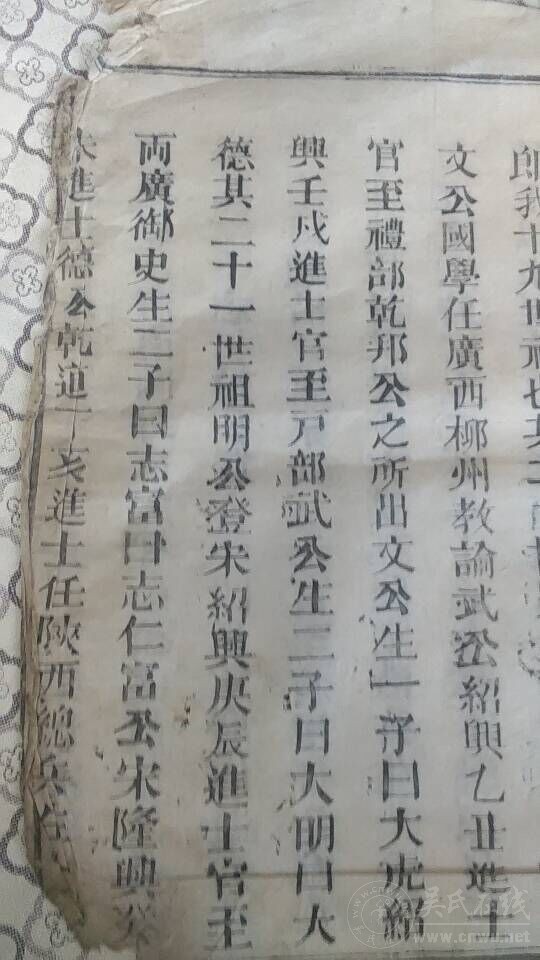 郎我十九世祖也其二
文公國學任廣西柳州教諭武公紹興乙丑進士
官至禮部乾邦公之所出文公生一子曰大虎紹
興壬戌進士官至戸部武公生二子曰大明曰大
德其二十一世祖明公登宋紹興庚辰進士官至
两廣御史生二子曰志富曰志仁富公宋隆興癸
未進士德公乾道丁亥進士任陝西總兵生
吴氏在线
www.cnwu.net